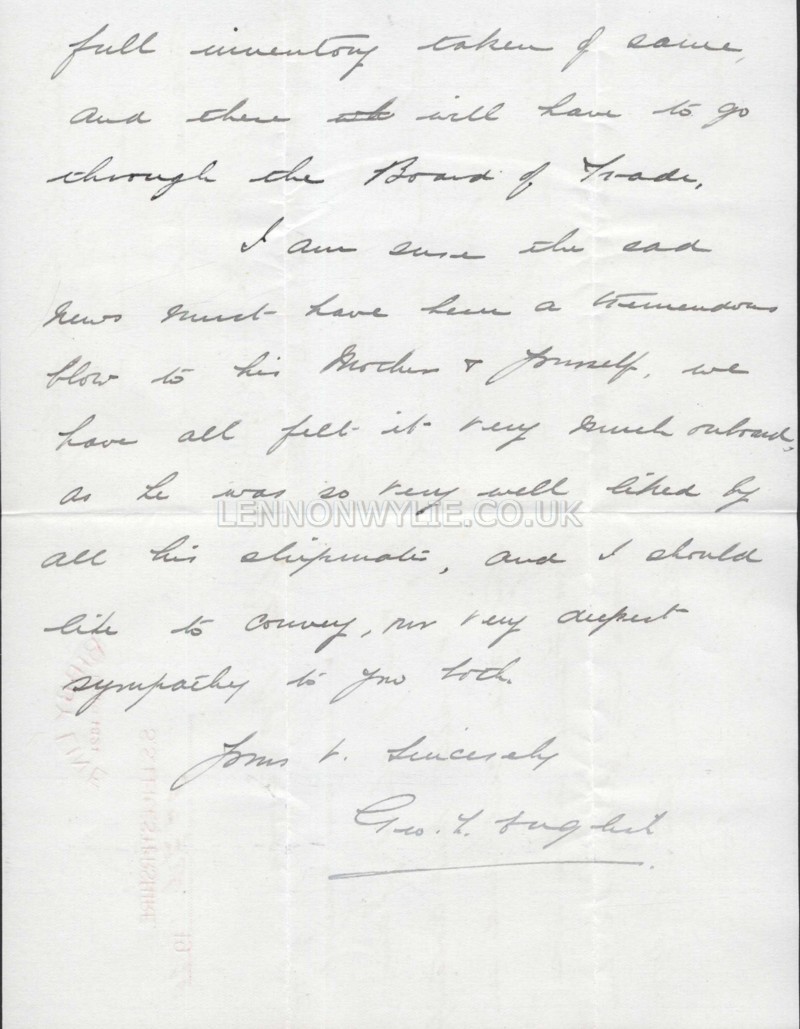 full inventory taken of same,
and these wh will have to go
through the Board of Trade.
I am sure the sad
news must have been a tremendous
blow to his Mother & Yourself, we
have all felt it very much onboard,
as he was so very well liked by
LENNONWYLIE.CO.UK
all his shipmates, and I should
like to convey, our very deepest
sympathy to you both.
Yours v. Sincerely
Geo. L. English